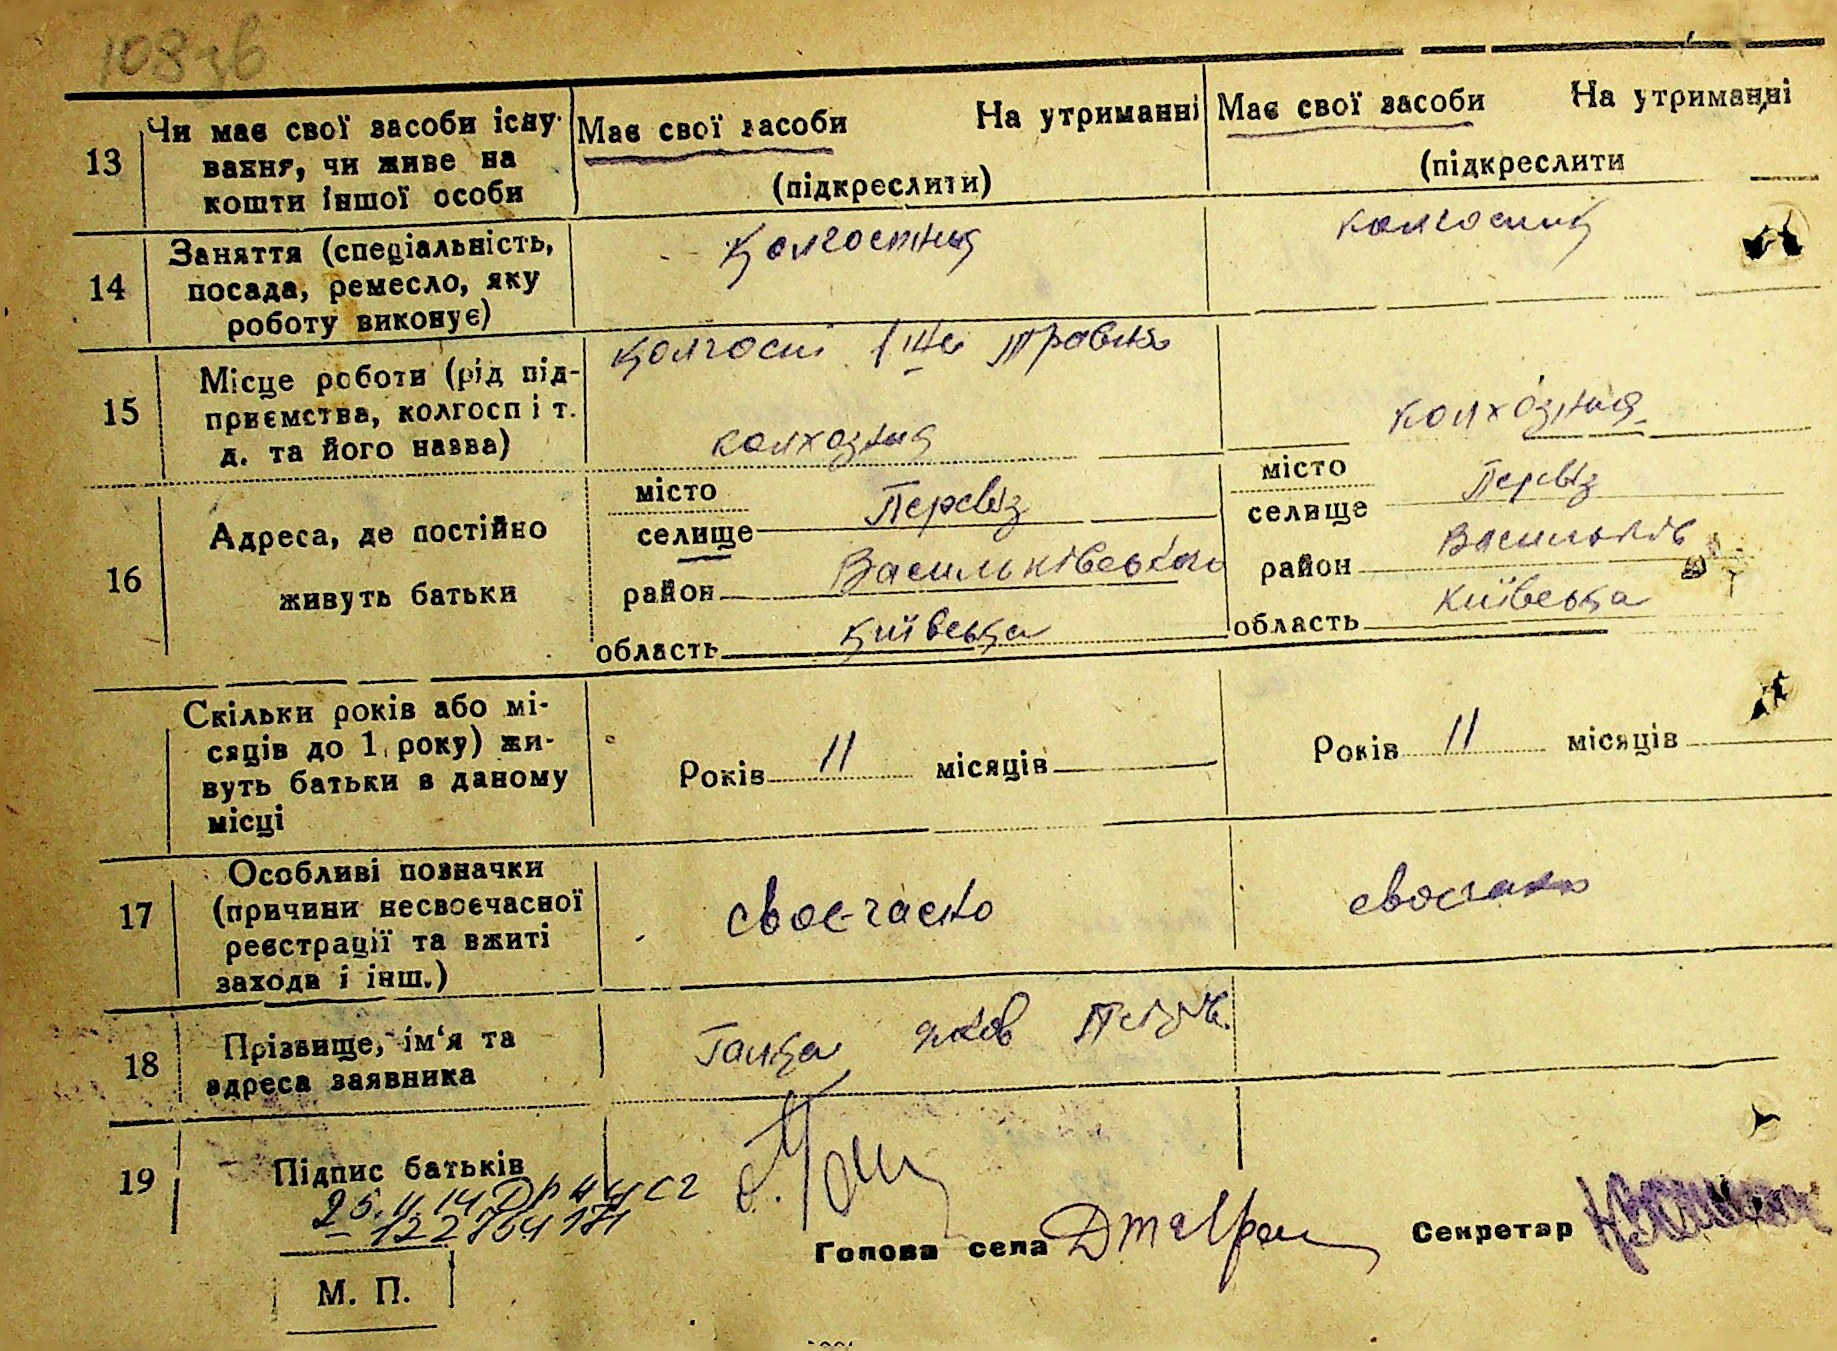 108 зв
Чи має свої засоби існу-
13
вання, чи живе на
кошти іншої особи
Має свої засоби На утриманні
(підкреслити)
Має свої засоби На утриманні
(підкреслити
14
Заняття (спеціальність,
посада, ремесло, яку
роботу виконує)
колгоспниця
колгоспник
15
Місце роботи (рід під-
приємства, колгосп і т.
д. та його назва)
колгосп 1ше Травня
колхозная
колхозная
16
Адреса, де постійно
живуть батьки
місто
селище Перевіз
район Васильківського
область київська
місто
селище Перевіз
район Васильків
область київська
Скільки років або мі-
сяців до 1 року) жи-
вуть батьки в даному
місці
Років 11 місяців
Років 11 місяців
17
Особливі позначки
(причини несвоєчасної
реєстрації та вжиті
заходи і інш.)
своєчасно
своєчасно
18
Прізвище, ім'я та
адреса заявника
Яков
19
Підпис батьків
Голова села
Секретар
М. П.